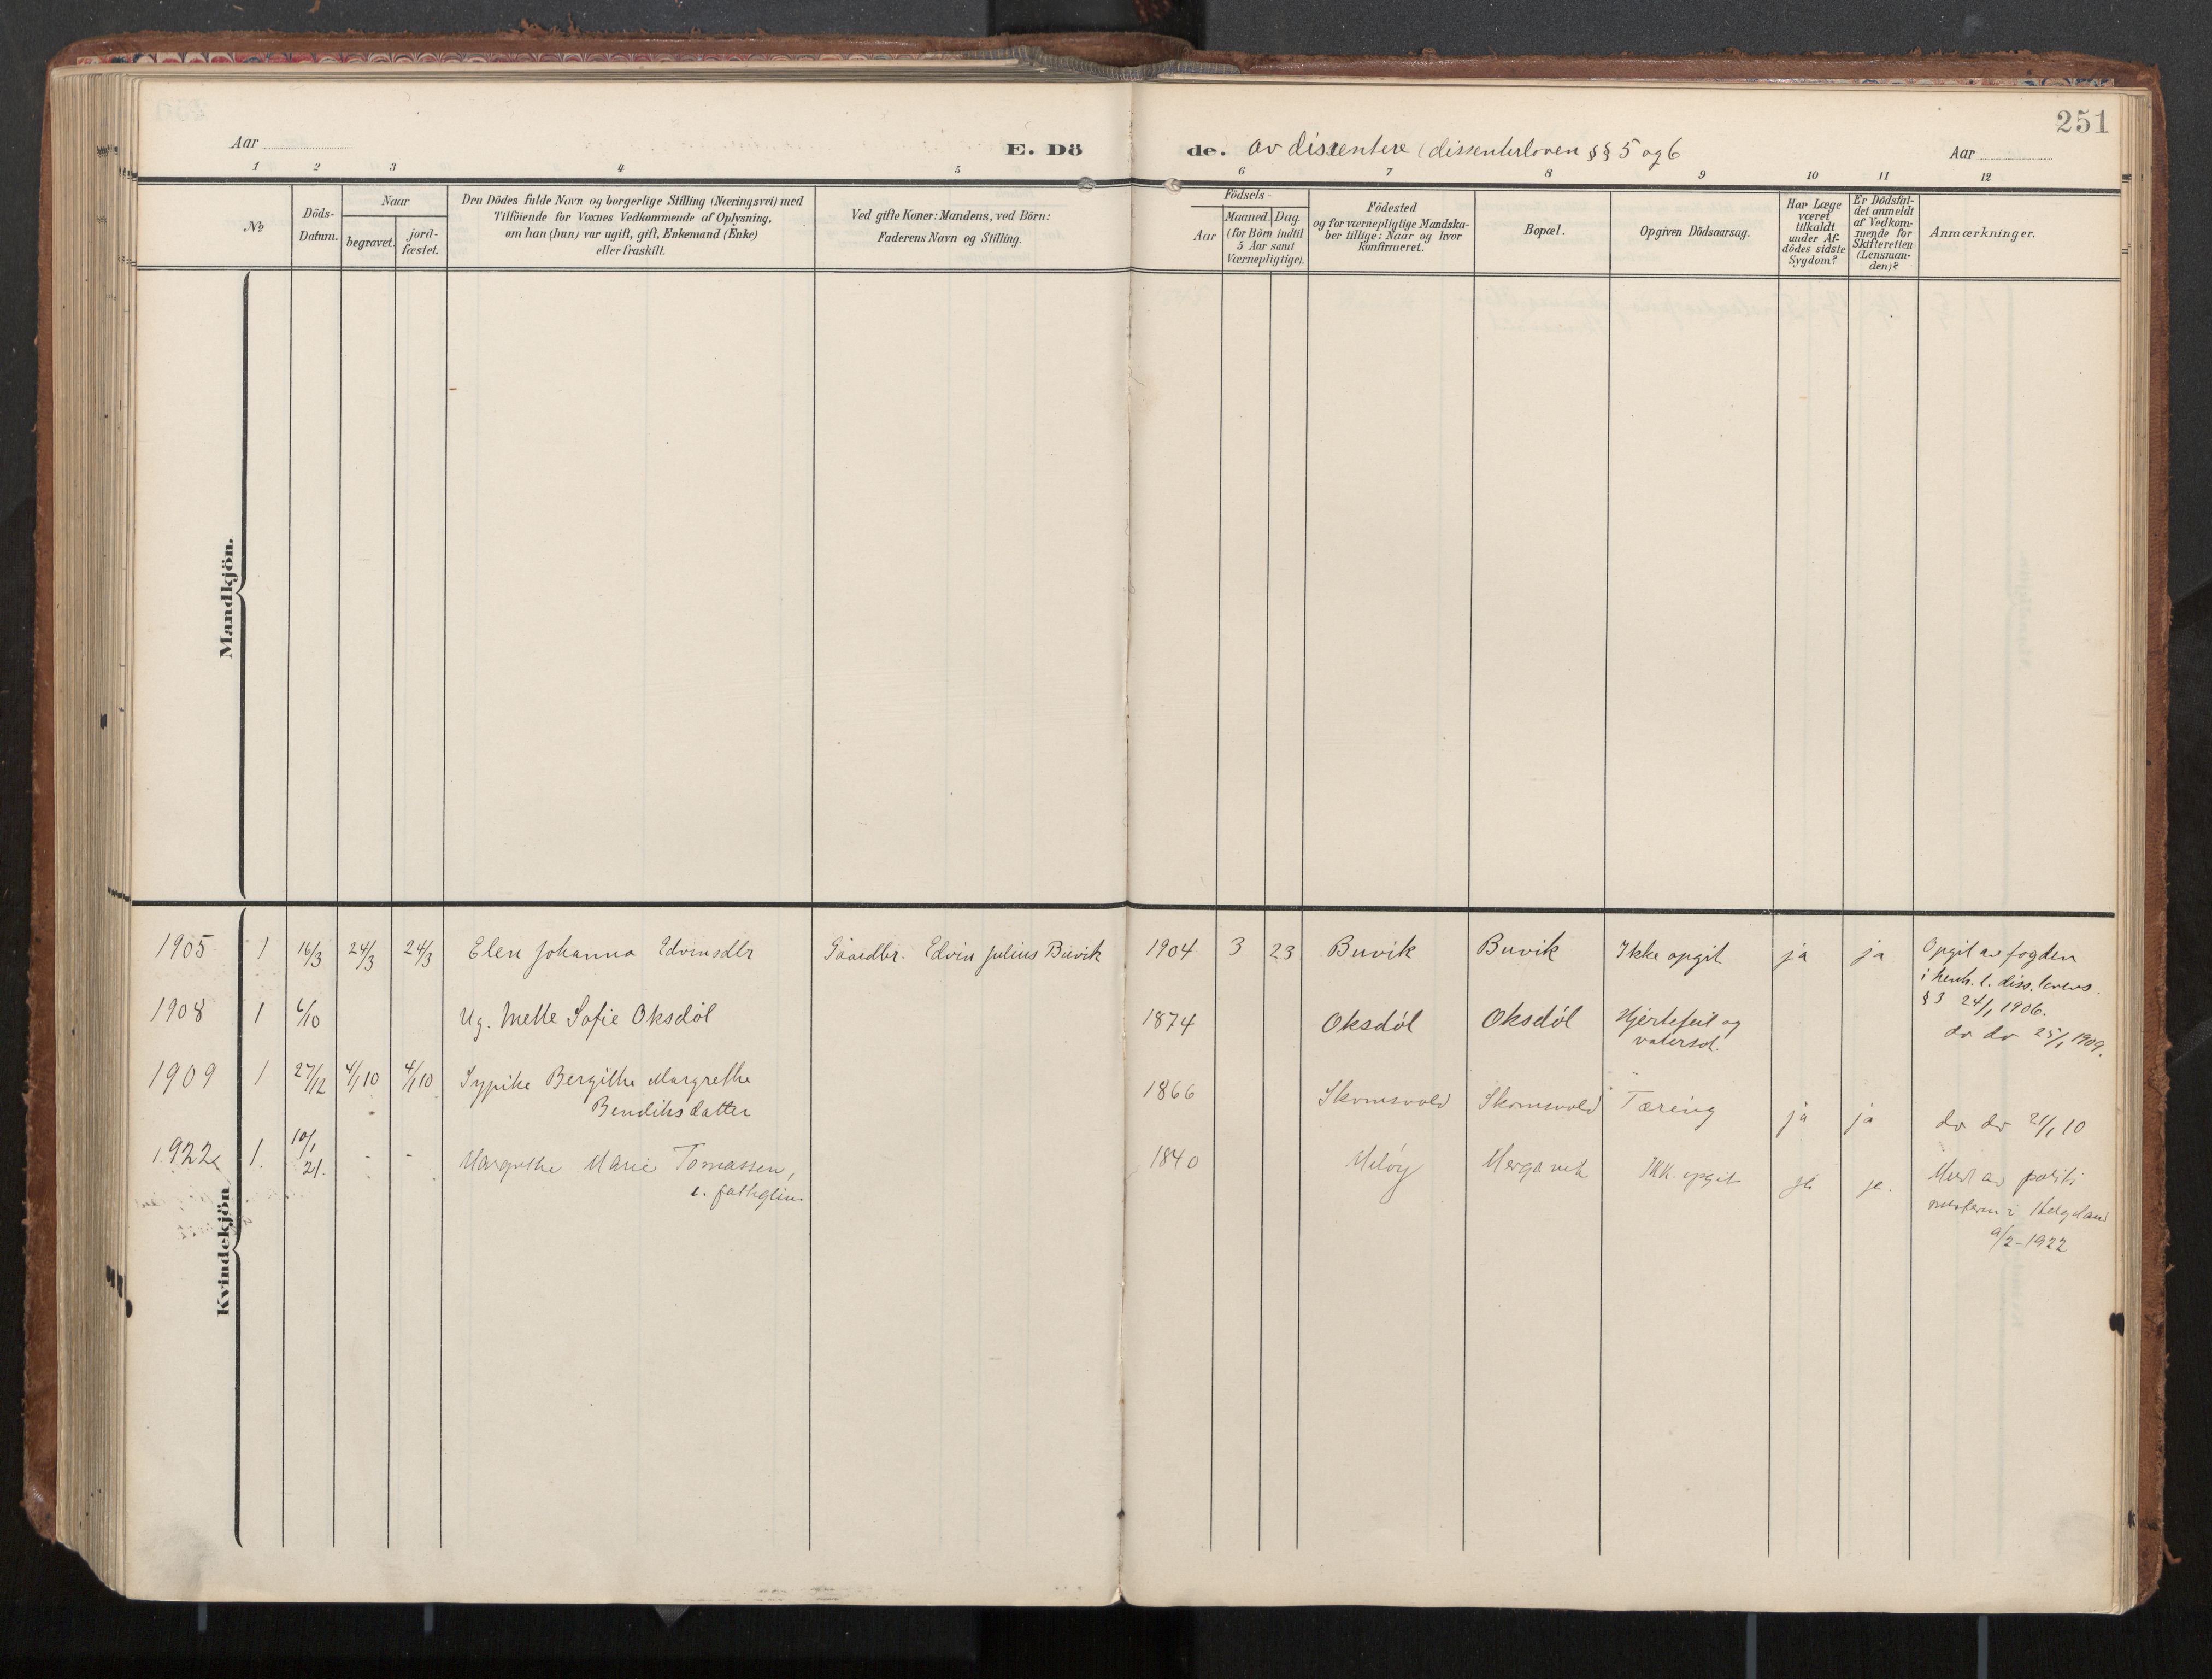 251
Aar
E. Dö
de. av dissentere (dissenterloven §§ 5 og 6
Aar
1 2 3 4 5 6 7 8 9 10 11 12
No
Döds-
Datum.
Naar
begravet.
jord-
fæstet.
Den Dödes fulde Navn og borgerlige Stilling (Næringsvei) med
Tilföiende for Voxnes Vedkommende af Oplysning,
om han (hun) var ugift, gift, Enkemand (Enke)
eller fraskilt.
Ved gifte Koner: Mandens, ved Börn:
Faderens Navn og Stilling.
Födsels-
Aar
Maaned. Dag.
(for Börn indtil
5 Aar samt
Værnepligtige).
Födested
og for værnepligtige Mandska-
ber tillige: Naar og hvor
konfirmeret.
Bopæl.
Opgiven Dödsaarsag.
Har Læge
været
tilkaldt
under Af-
dödes sidste
Sygdom?
Er Dödsfal-
det anmeldt
af Vedkom-
mende for
Skifteretten
(Lensman-
den)?
Anmærkninger.
Mandkjön.
Kvindekjön
1905 1 16/3 24/3 24/3 Elen Johanna Edvinsdtr Gaardbr. Edvin Julius Buvik 1904 3 23 Buvik Buvik Ikke opgit ja ja Opgit av fogden
i henh. t. diss.lovens
§3 24/1 1906.
1908 1 6/10 Ug. Mette Sofie Oksdøl 1874 Oksdøl Oksdøl Hjertefeil og
vatersot.
do do 25/1 1909.
1909 1 27/12 4/1 10 4/1 10 Sypike Bergithe Margrethe
Bendiksdatter
1866 Skomsvold Skomsvold Tæring ja ja do do 21/1 10
1922 1. 10/1
21.
- - Margrethe Marie Tomassen,
e. fattiglem
1840 Meløy Ikk. opgit ja ja. Medd av politi
mesteren i Helgeland
9/2-1922